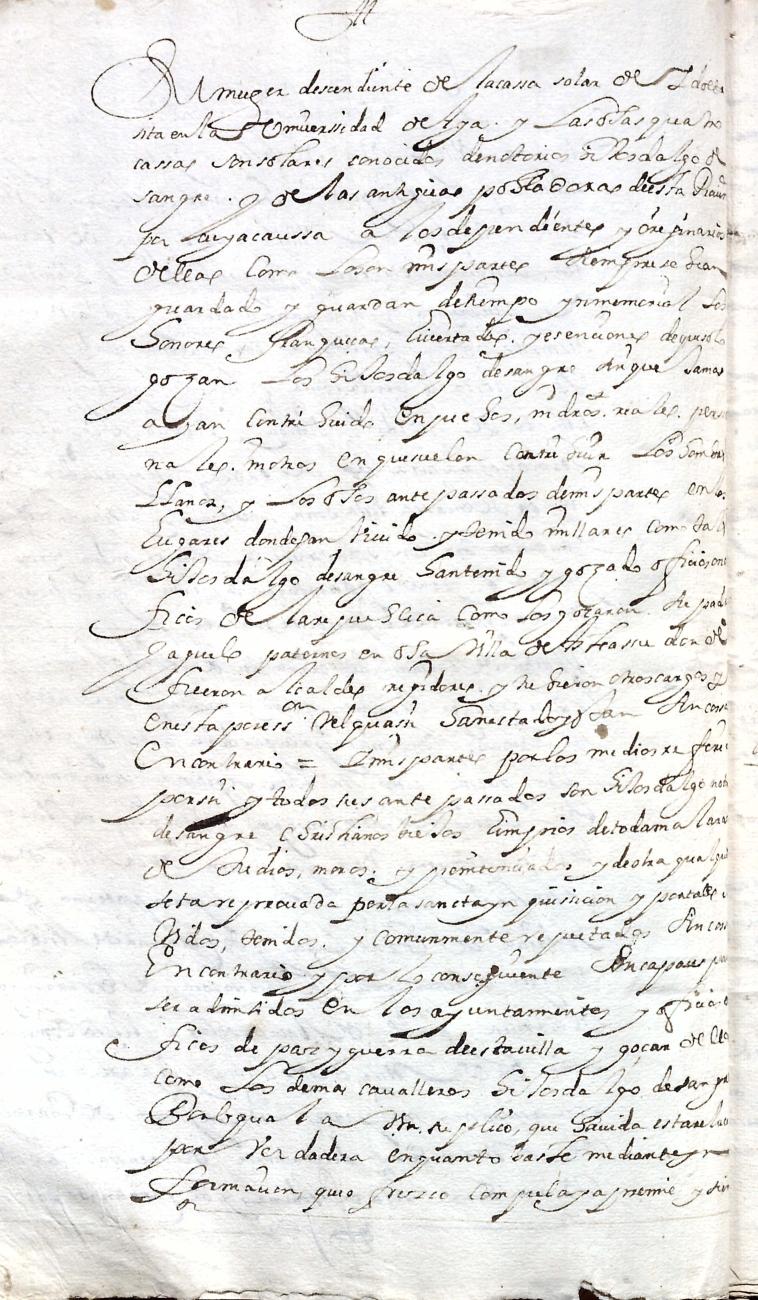 Su muger descendiente de la cassa solar de
sita en la Universidad de Lya. y Las dhas quatro
cassas son solares conocidos de notorios hijosdalgo de
sangre. y de las antiguas pobladoras de esta
por cuya caussa a los dependientes y originarios
de ellas como lo son mis partes siempre se han
guardado y guardan de tiempo ynmemorial los
honores, franquiças, livertades. y esenciones de que solo
gozan los hijosdalgo de sangre sin que jamas
ayan contribuido en pechos, ni dros. reales. perso
nales. mistos en que suelen contribuir Los hombres
Llanos, y Los dhos antepassados de mis partes en los
Lugares donde han vivido. y tenido millares como tales
hijosdalgo de sangre han tenido y gozado officios ono
ficos de la republica como los gozaron. su padre
y aguelo paternos en dha Villa de donde
fueron alcaldes regidores. y tubieron otros cargos y
en esta posess.on vel quasi han estado y estan sin cossa
En contrario = mis partes por los medios refere
por si y todos sus antepassados son hijosdalgo noto
de sangre christianos biejos limpios de toda mala ra
de Judios, moros. y penitenciados y de otra qualquie
seta reprovada por la sancta ynquisicion y por tales
tenidos. y comunmente reputados sin cossa
En contrario y por lo consiguiente son capaces pa
ser admitidos en los ayuntamientos y officios
ficos de paz y guerra de esta villa y goçar de ellos
como los demas cavalleros hijosdalgo de sangre
Por lo qual a Vm. suplico, que havida esta relaz
por verdadera en quanto baste mediante yn
formacion, que ofrezco compela y apremie y